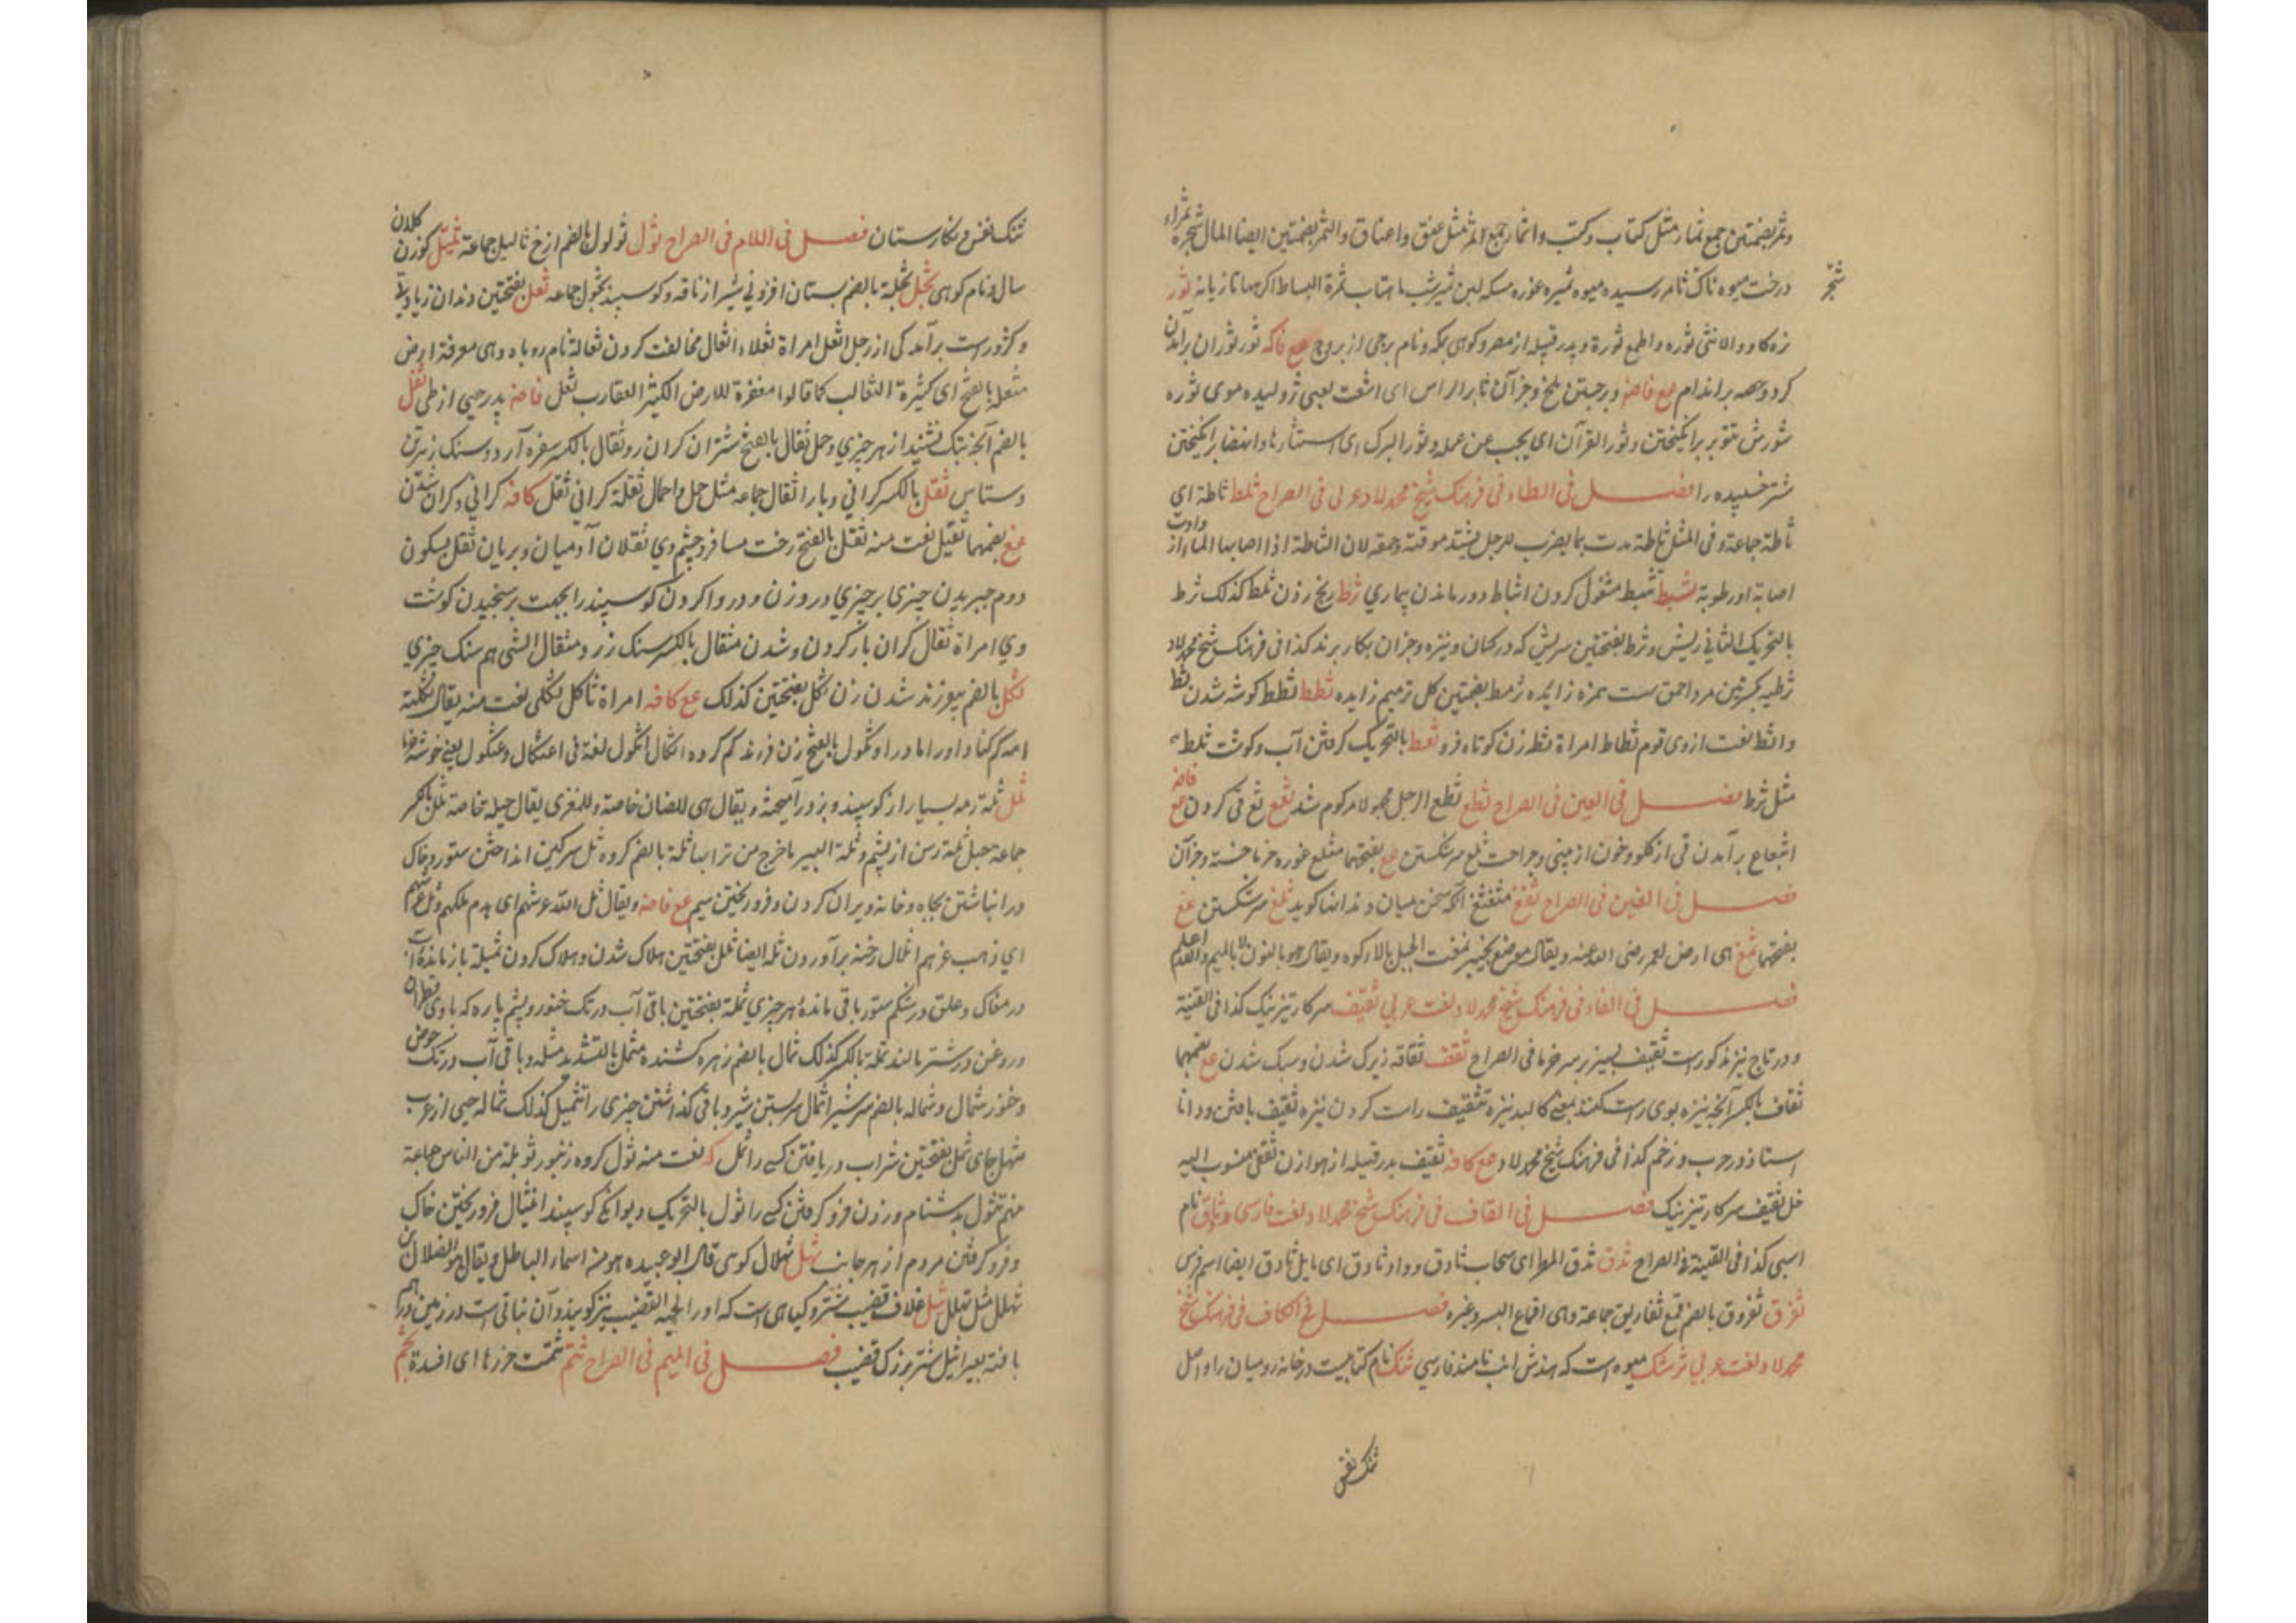 وثمر بضمتین جمع ثمار مثل کتاب وکتب واثمار جمع الثمر مثل عنق واعناق والثمر بضمتین ایضا المال شجرة ثمراء
درخت میوه ناک ثامر رسیده میوه ثمیره غوره مسکه لبن ثمیر شب ماهتاب ثمرة السیاط اکرهها تازیانه ثور
شجر
نره کاو والانثی ثوره واطمع ثورة وپدر قبیله از مضر وکوهی بمکه ونام برجی از بروج مع فاکه ثور ثوران برآمدن
کرد وحصبه براندام مع فاصه وبرجستن ملخ وجز آن ثایر الراس ای اشعث یعنی ژولیده موی ثوره
شورش تثویر برانکیختن وثور القرآن ای یبحث عن علمه وثور البرک ای استثارها وانهضها برانکیختن
شتر خسپیده را فصل فی الطاء فی فرهنک شیخ محمد لاد عربی فی الصراح ثلط ثاطة ای
ثاطة جماعة وفی المثل ثاطة مدت بماء یضرب للرجل یشتد موقه وحمقه لان الثاطة اذا اصابها الماء ازدادت
اصابة او رطوبة ثبط تثبیط مشغول کردن اثباط دور ماندن بیماری ثرط ریخ زدن ثلط کذلک ثرط
بالتحریک الثانی ریش وثرط بفتحتین سریش که در کمان ونیزه وجزان بکار برند کذا فی فرهنک شیخ محمد لاد
ثرطیه بکسرتین مرد احمق ست همزه زایده ثرمط بضمتین کل تر میم زایده ثطط ثطط کوسه شدن ثط
واثط نعت از وی قوم ثطاط امراة ثطه زن کوتاه فرو ثعط بالتحریک کرفتن آب وکوشت ثلط
مثل ثرط فصل فی العین فی الصراح ثطع ثطع الرجل مجهولا مزکوم شد ثعع ثع قی کردن مع فاصه
انثعاع برآمدن قی از کلو وخون از بینی وجراحت ثلع سر شکستن مع بفتحهما مثلع غوره خرما خسته وجزآن
فصل فی الغین فی الصراح ثغغ مثغثغ آنکه سخن میان دندانها کوید ثلغ سر شکستن مع
بفتحهما ثمغ ای ارض لعمر رضی الله عنه ویقال موضع بخیبر ثمغت الجبل بالارکوه ویقال هو بالنون لا بالمیم والله اعلم
فصل فی الفاء فی فرهنک شیخ محمد لاد لغت عربی ثقیف سرکار تیز نیک کذا فی القنیة
ودر تاج نیز مذکورست ثقیف بسیز بر سرخرما فی الصراح ثقف ثقافه زیرک شدن وسبک شدن مع بضمهما
ثقاف بالکسر آنچه نیزه بوی راست کنند بمعنی کالبد نیزه تثقیف راست کردن نیزه ثقیف یافتن ودانا
استاد در حرب وزخم کذا فی فرهنک شیخ محمد لاد مع کافه ثقیف پدر قبیله از هوازن ثقفی منسوب الیه
خل ثقیف سرکار تیز نیک فصل فی القاف فی فرهنک شیخ محمد لاد لغت فارسی وثاق نام
اسبی کذا فی القنیة فی الصراح ثدق ثدق المطر ای سحاب ثادق وواد ثادق ای مایل ثادق ایضا اسم فرس
ثفرق ثفروق بالضم قمع ثفاریق جماعة وهی اقماع البسر وغیره فصل فی الکاف فی فرهنک شیخ
محمد لاد لغت عربی ثرشک میوه است که هندش انب نامند فارسی ثنک نام کتابیست در خانه رومیان را واصل
ثنک نفس
ثنک نفس ونکارستان فصل فی اللام فی الصراح ثول ثولول بالضم ازخ ثالیل جماعة ثیتل کوزن کلان
سال ونام کوهی ثجل ثجلة بالضم بستان افزونی شیر از ناقه وکوسپند ثجول جماعه ثعل بفتحتین دندان زیادتی
وکژورست برآمدکی از رجل اثعل امراة ثعلاء اثعال مخالفت کردن ثعالة نام روباه وهی معرفة ارض
مثعلة بالفتح ای کثیرة الثعالب کما قالوا معقرة للارض الکثیر العقارب ثعل فاصه پدر حیی از طی ثفل
بالضم آنچه بتک نشیند از هر چیزی وحل ثفال بالفتح شتر ان کران رو ثفال بالکسر سفره آرد وسنک زیرین
دستاس ثقل بالکسر کرانی وبار اثقال جماعه مثل حمل واحمال ثقلة کرانی ثقل کافه کرانی وکران شدن
مع بضمهما ثقیل نعت منه ثقل بالفتح رخت مسافر وچشم وی ثقلان آدمیان وپریان ثقل بسکون
دوم چیریدن چیزی بر چیزی در وزن ودروا کردن کوسپند را بجهت برسنجیدن کوشت
وی امراة ثقال کران بار کردن وشدن مثقال بالکسر سنک زر ومثقال الشی هم سنک چیزی
ثکل بالضم بیفرزند شدن زن ثکل بفتحتین کذلک مع کافه امراة ثاکل ثکلی نعت منه یقال ثکلته
امه کم کناد اورا مادر او ثکول بالفتح زن فرزند کم کرده اثکال اثکول لغة فی اعثکال وعثکول یعنی خوشه خرما
ثلل ثلة رمه بسیار از کوسپند وبز ورامیحته ویقال هی للضان خاصة وللمغزی یقال حیلة خاصة ثلل بالکسر
جماعه حبل ثلة رسن از پشم وثلة البیر ماخرج من ترابها ثلة بالضم کروه ثل سرکین انداختن ستور وخاک
در انباشتن بچاه وخانه ویران کردن وفرو ریختن سیم مع فاصه ویقال ثل الله عرشهم ای هدم ملکهم وثل عرشهم
ای ذهب عزهم اثلال رخنه برآوردن ثله ایضا ثلل بفتحتین هلاک شدن وهلاک کردن ثمیلة بازمانده آب
در مغاک وعلف در شکم ستور باقی مانده هر چیزی ثملة بفتحتین باقی آب در تک خنور وپشم پاره که باوی قطران
وروغن در شتر مالند ثملة بالکسر کذلک ثمال بالضم زهره کشنده مثمل بالتشدید مثله وباقی آب در تک حوض
وخنور ثمال وثماله بالضم سر شیر اثمال سربستن شیر وباقی کذاشتن چیزی را تثمیل کذلک ثماله حیی از عرب
مثمل جای ثمل بفتحتین شراب دریافتن کسی را ثمل که نعت منه ثول کروه زنبور ثویلة من الناس جماعة
منهم تثول بدشنام وزدن فرو کرفتن کسی را ثول بالتحریک دیوانکی کوسپند انثیال فرو ریختن خاک
وفرو کرفتن مردم از هر جانب ثهل ثهلال کوهی قال ابو عبیده هو منه اسماء الباطل ویقال هو الضلال بن
ثهلل مثل تهلل ثیل غلاف قضیب شتر وکیاهی است که اورا لحیه القضیب نیز کویند وآن نباتی است در زمین در هم
بافته بعیر اثیل شتر بزرک قضیب فصل فی المیم فی الصراح ثتم ثتمت خرزها ای افسدة ثجم